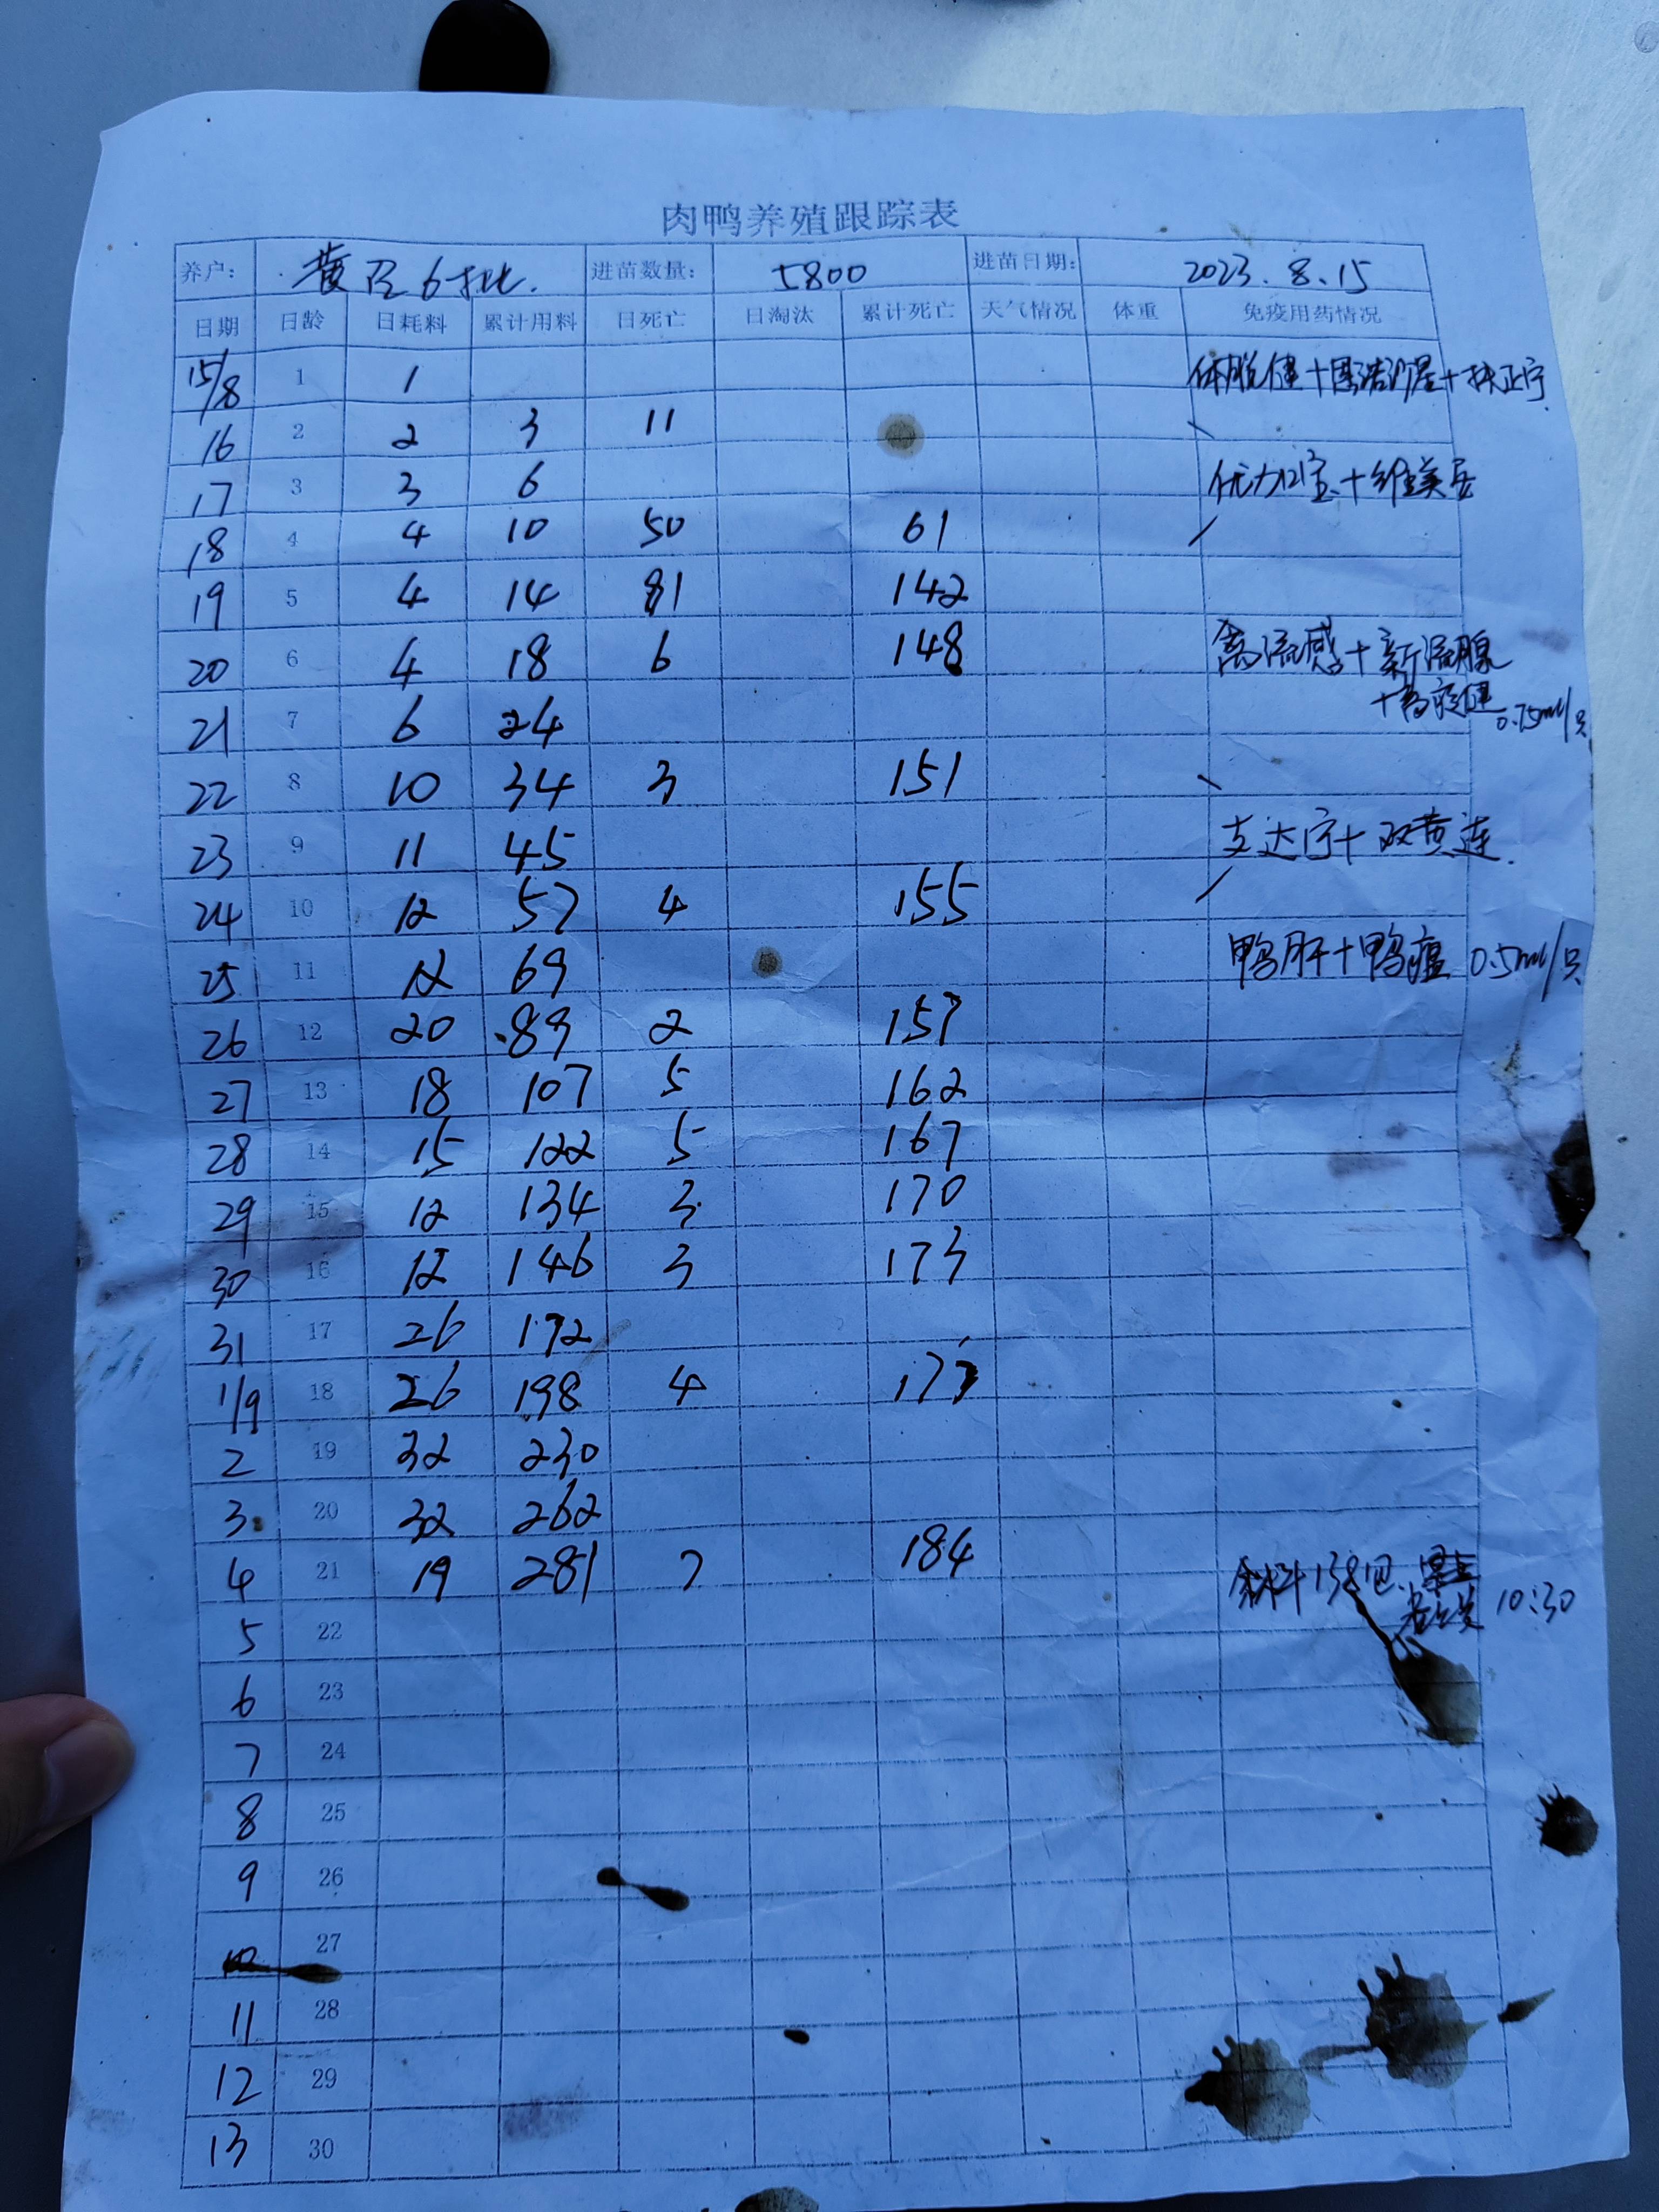 肉鸭养殖跟踪表
养户: 黄 6批. 进苗数量: 5800 进苗日期: 2023.8.15
日期 日龄 日耗料 累计用料 日死亡 日淘汰 累计死亡 天气情况 体重 免疫用药情况
15/8 1 1 +扶正宁
16 2 2 3 11
17 3 3 6
18 4 4 10 50 61
19 5 4 14 81 142
20 6 4 18 6 148 禽流感+新流腺
21 7 6 24 0.75ml/只
22 8 10 34 3 151
23 9 11 45 支达宁+双黄连.
24 10 12 57 4 155
25 11 12 69 鸭肝+鸭瘟 0.5ml/只
26 12 20 89 2 157
27 13 18 107 5 162
28 14 15 122 5 167
29 15 12 134 3 170
30 16 12 146 3 173
31 17 26 172
1/9 18 26 198 4 177
2 19 32 230
3 20 32 262
4 21 19 281 7 184 余料138包.
10:30
5 22
6 23
7 24
8 25
9 26
10 27
11 28
12 29
13 30